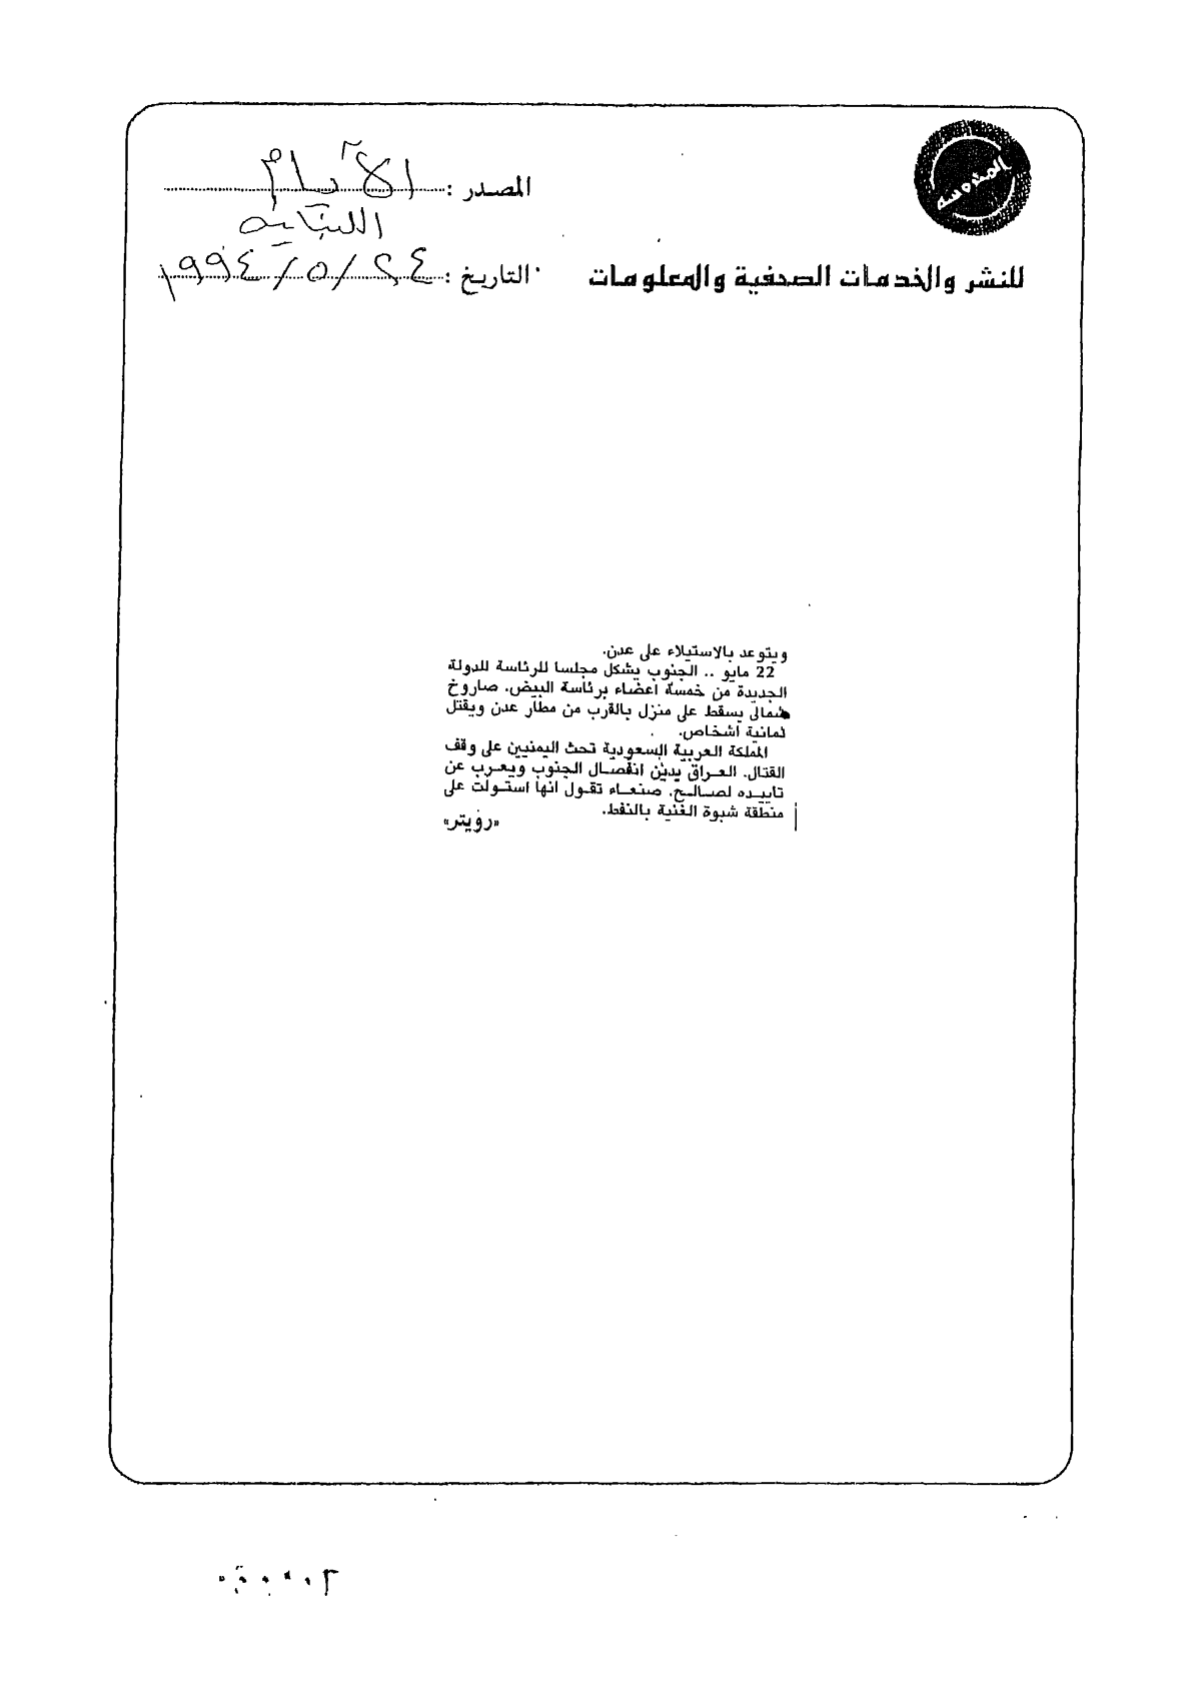 المصدر : الأيام
اللبنانية
للنشر والخدمات الصحفية والمعلومات
التاريخ : ٢٤ / ٥ / ١٩٩٤م
ويتوعد بالاستيلاء على عدن.
22 مايو .. الجنوب يشكل مجلسا للرئاسة للدولة
الجديدة من خمسة اعضاء برئاسة البيض. صاروخ
شمالي يسقط على منزل بالقرب من مطار عدن ويقتل
ثمانية اشخاص.
المملكة العربية السعودية تحث اليمنيين على وقف
القتال. العراق يدين انفصال الجنوب ويعرب عن
تاييده لصالح. صنعاء تقول انها استولت على
منطقة شبوة الغنية بالنفط.
«رويتر»